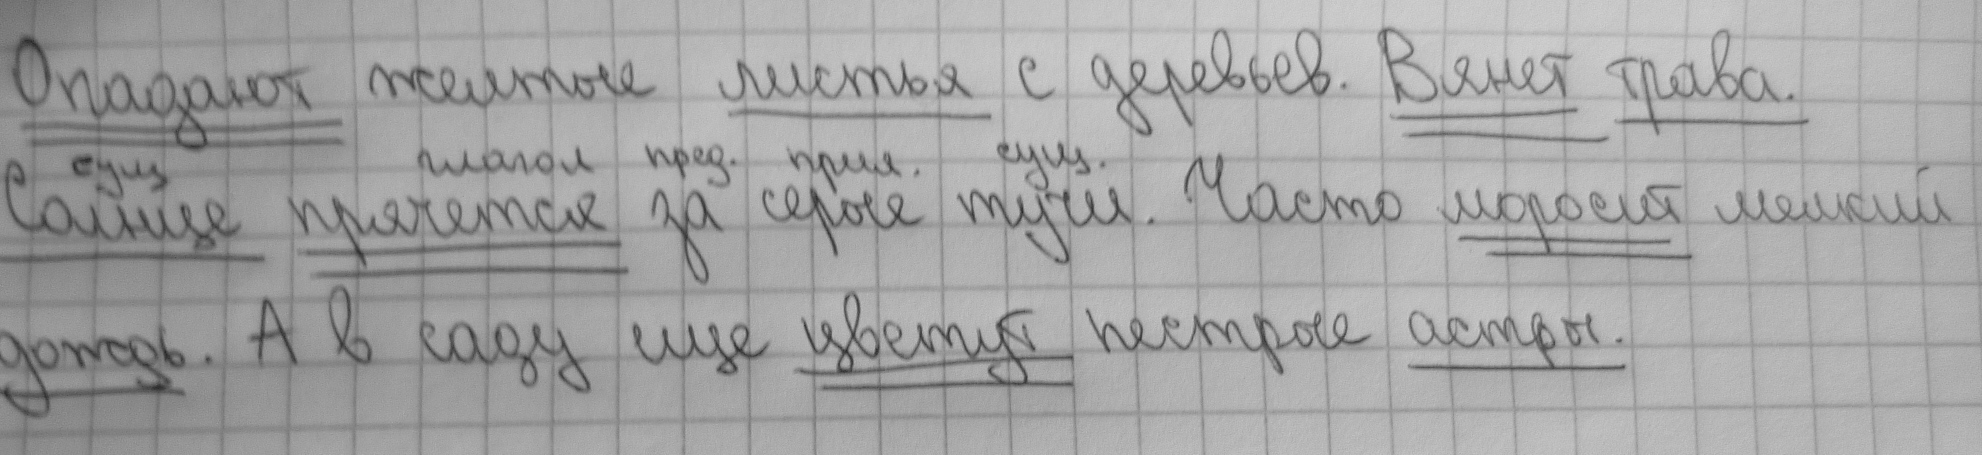 Опадают желтые листья с деревьев. Вянет трава.
сущ глагол пред. прил. сущ.
Солнце прячется за серые тучи. Часто моросит мелкий
дождь. А в саду еще цветут пестрые астры.